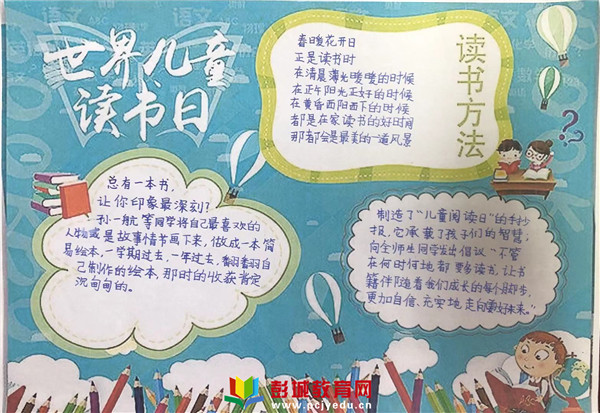 世界儿童
读书日
读书方法
春日暖花开日
正是读书时
在清晨薄光暧暧的时候
在正午阳光正好的时候
在黄昏西阳西下的时候
都是在家读书的好时间
那都会是最美的一道风景
总有一本书,
让你印象最深刻?
孙一航等同学将自己最喜欢的
人物或是故事情书画下来,做成一本简
易绘本,一学期过去,一年过去,翻翻自
己制作的绘本,那时的收获肯定
沉甸甸的。
制造了“儿童阅读日”的手抄
报,它承载了孩子们的智慧;
向全师生同学发出倡议“不管
在何时何地都要多读书,让书
籍伴随着我们成长的每个脚步,
更加自信、充实地走向更好未来。”
彭城教育网
www.pcjyedu.cn